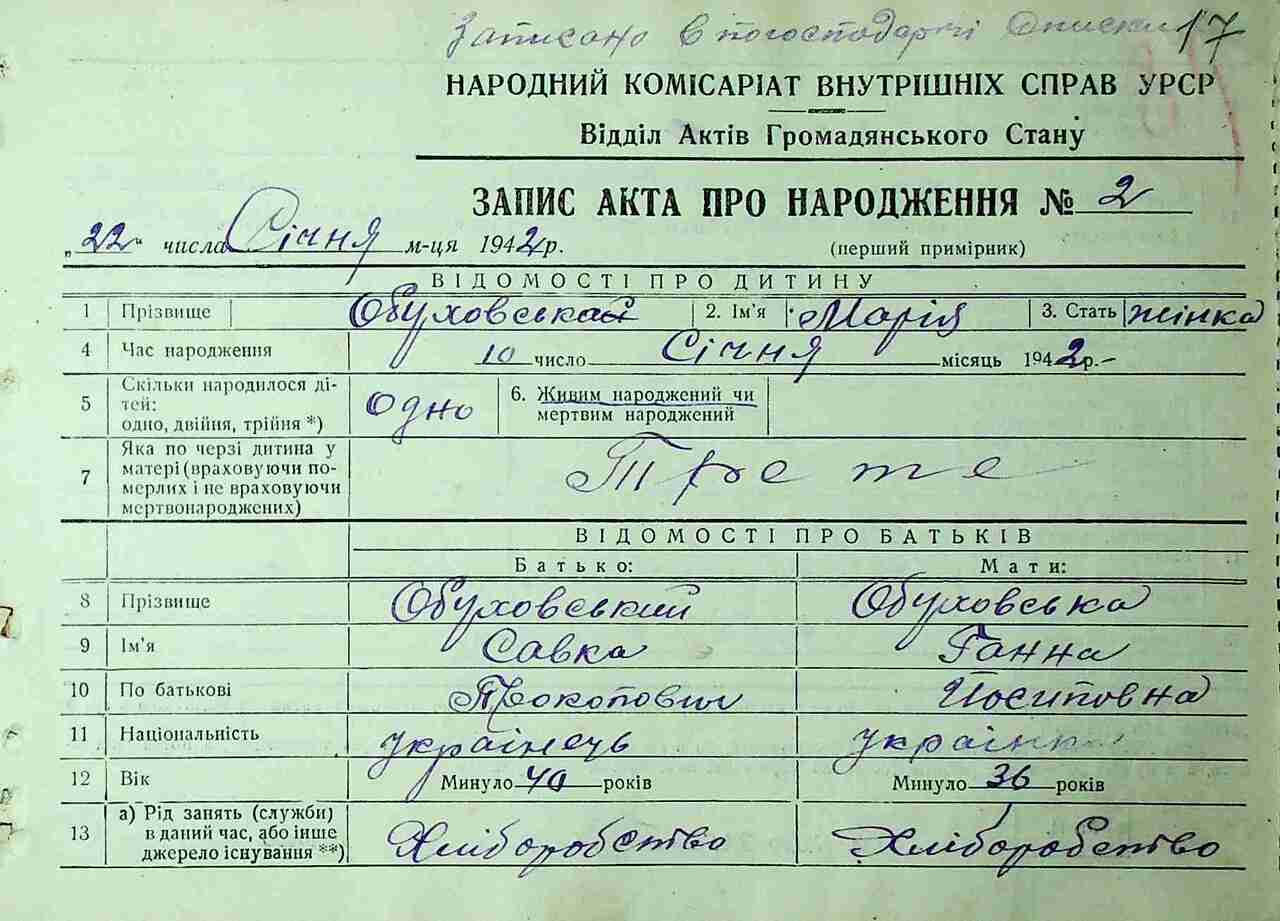 Записано в погосподарчі списки 17
НАРОДНИЙ КОМІСАРІАТ ВНУТРІШНІХ СПРАВ УРСР
Відділ Актів Громадянського Стану
ЗАПИС АКТА ПРО НАРОДЖЕННЯ № 2
„22“ числа Січня м-ця 1942 р. (перший примірник)
ВІДОМОСТІ ПРО ДИТИНУ
1 Прізвище Обуховська 2. Ім'я Марія 3. Стать жінка
4 Час народження 10 число Січня місяць 1942 р.-
5 Скільки народилося ді-
тей:
одно, двійня, трійня *) Одно 6. Живим народжений чи
мертвим народжений
7 Яка по черзі дитина у
матері (враховуючи по-
мерлих і не враховуючи
мертвонароджених) Третє
ВІДОМОСТІ ПРО БАТЬКІВ
Батько: Мати:
8 Прізвище Обуховський Обуховська
9 Ім'я Савка Ганна
10 По батькові Прокопович Йосиповна
11 Національність українець українк
12 Вік Минуло 40 років Минуло 36 років
13 а) Рід занять (служби)
в даний час, або інше
джерело існування **) Хліборобство Хліборобство